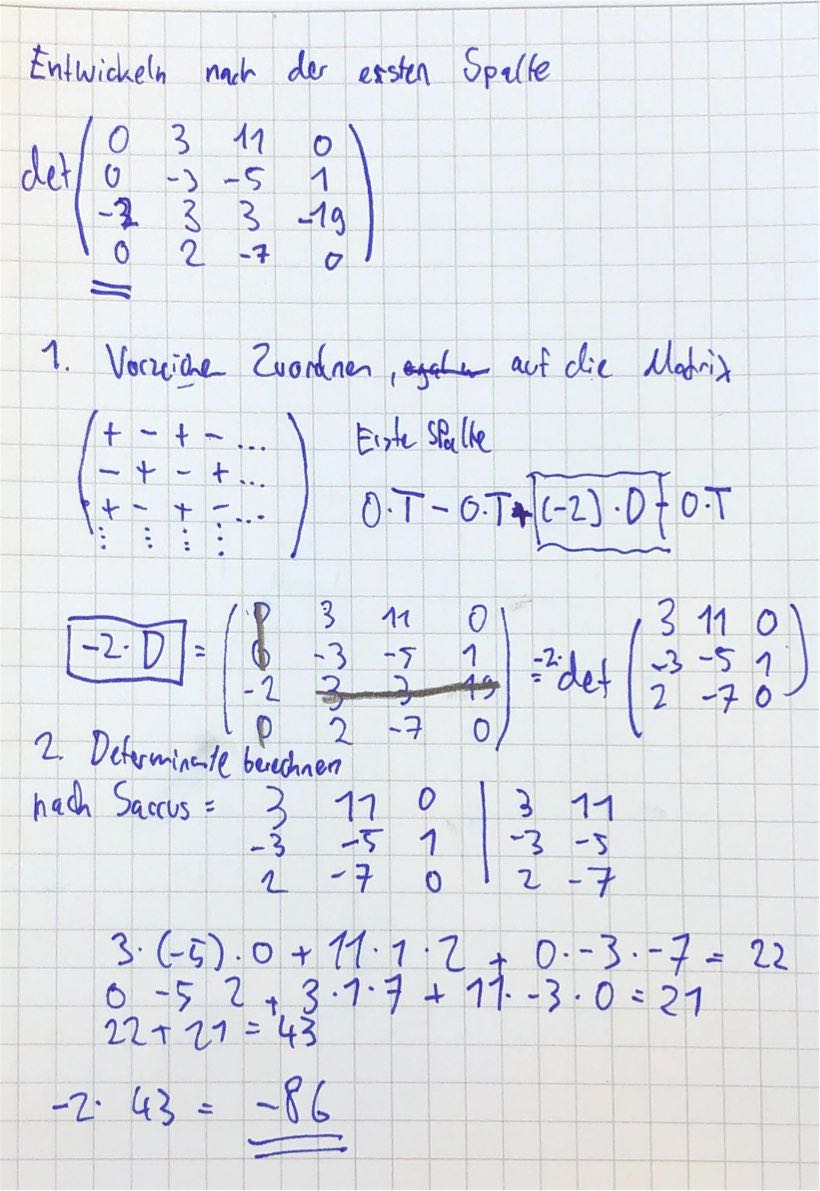 Entwickeln nach der ersten Spalte
det ( 0 3 11 0
0 -3 -5 1
-2 3 3 -19
0 2 -7 0 )
1. Vorzeiche Zuordnen, auf die Matrix
( + - + - ...
- + - + ...
+ - + - ...
⋮ ⋮ ⋮ ⋮ )
Erste Spalte
0·T - 0·T + (-2)·D - 0·T
-2·D = ( 0 3 11 0
0 -3 -5 1
-2 3 3 19
0 2 -7 0 )
= -2· det ( 3 11 0
-3 -5 1
2 -7 0 )
2. Determinante berechnen
nach Sarrus = 3 11 0 | 3 11
-3 -5 1 | -3 -5
2 -7 0 | 2 -7
3·(-5)·0 + 11·1·2 + 0·-3·-7 = 22
0 -5 2 + 3·1·7 + 11·-3·0 = 21
22 + 21 = 43
-2· 43 = -86